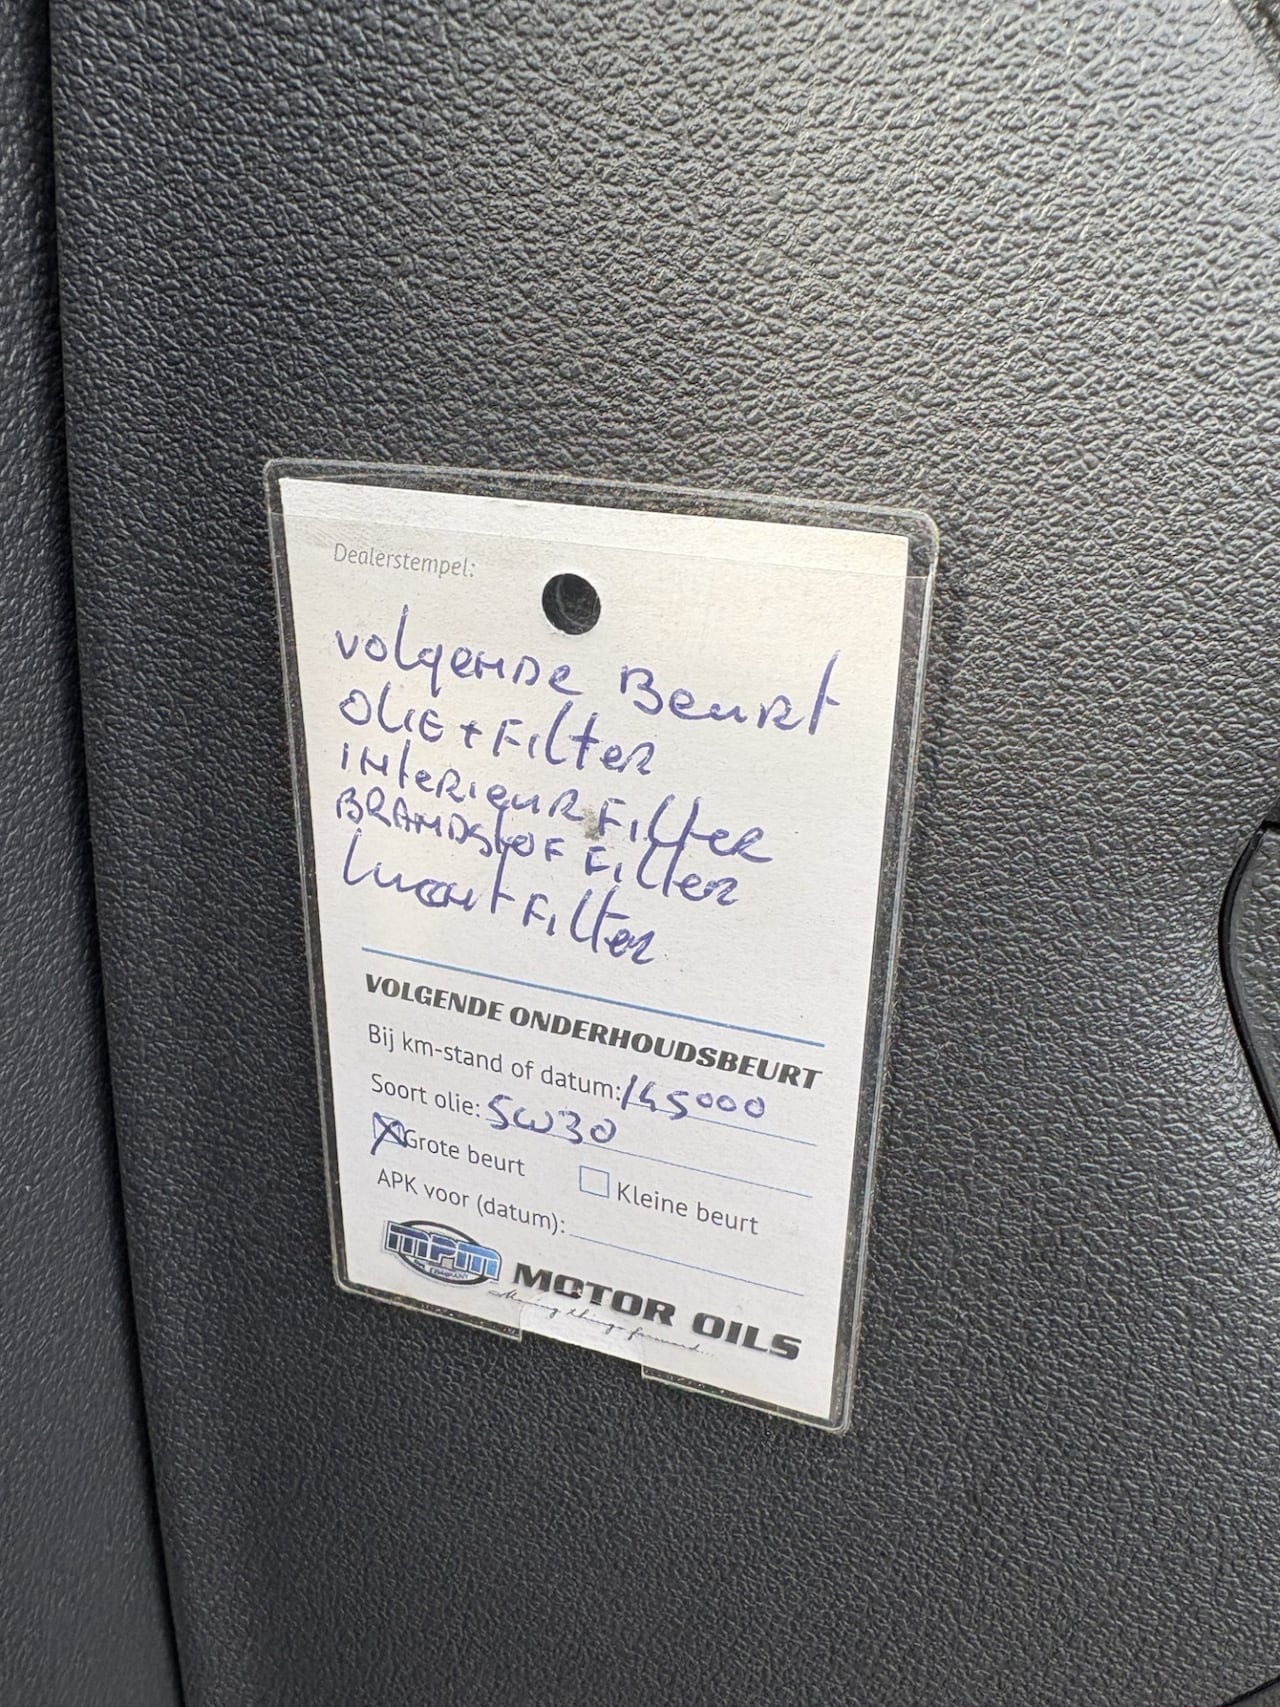 Dealerstempel:
volgende Beurt
Olie + Filter
interieur Filter
Brandstof Filter
lucht Filter
VOLGENDE ONDERHOUDSBEURT
Bij km-stand of datum: 145000
Soort olie: 5W30
Grote beurt
Kleine beurt
APK voor (datum):
mpm
OIL COMPANY
MOTOR OILS
Moving things forward...